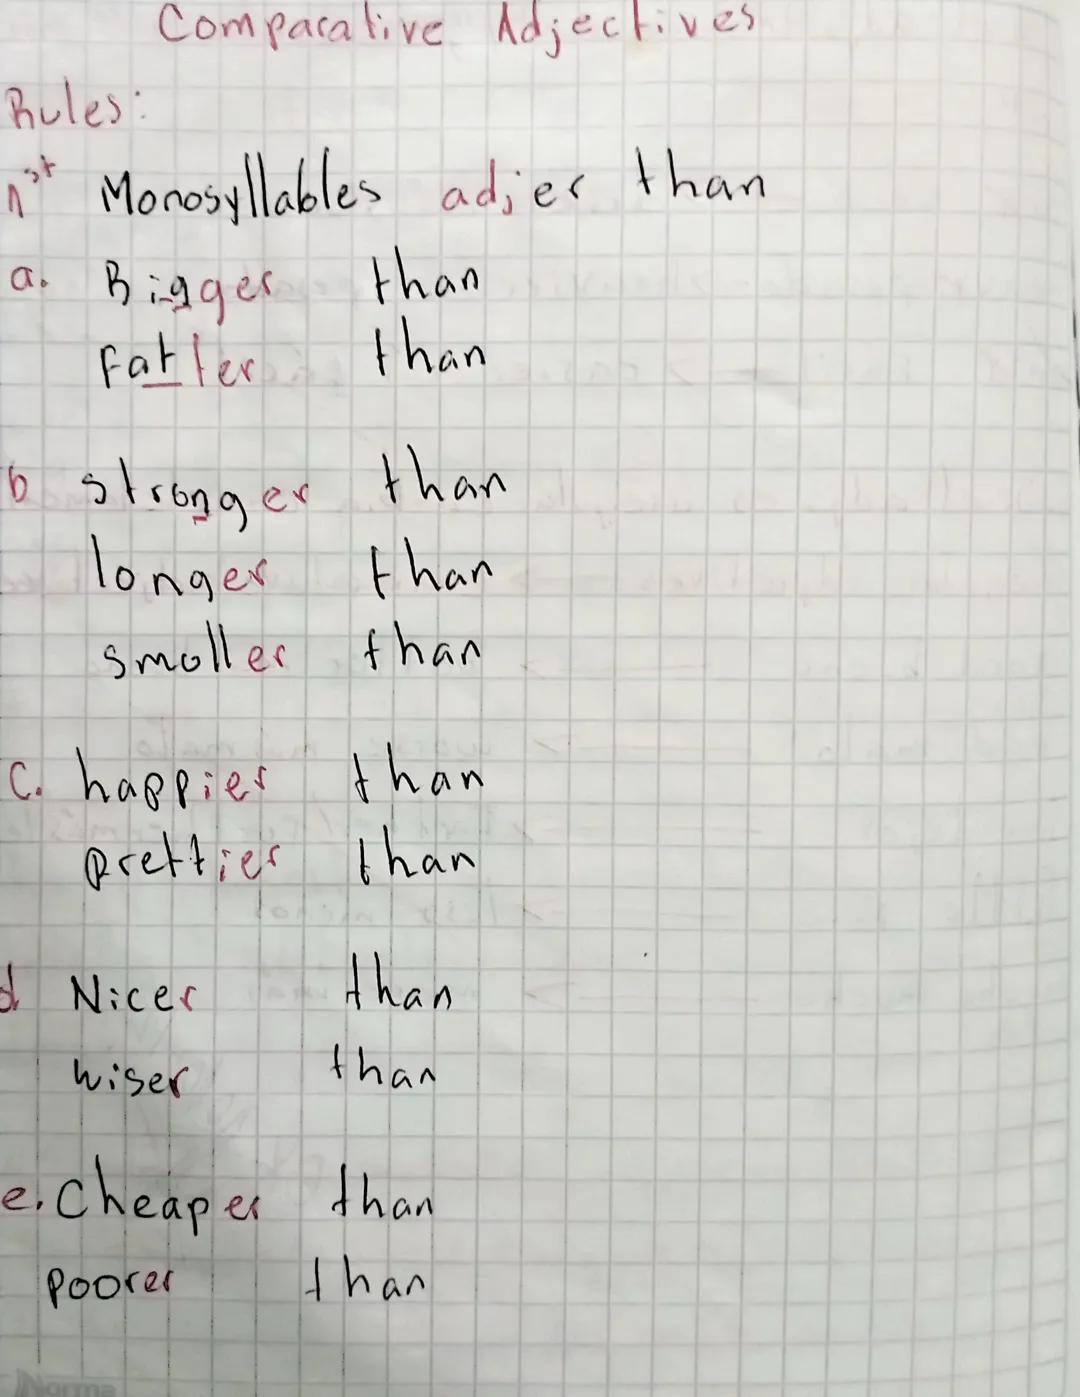 Comparative Adjectives
Rules:
1st Monosyllables adjer than
a. Bigger than
Fatter than
b stronger than
longer than
smoller than
c. happier than
prettier than
d Nicer than
wiser than
e. Cheaper than
poorer than
Norma